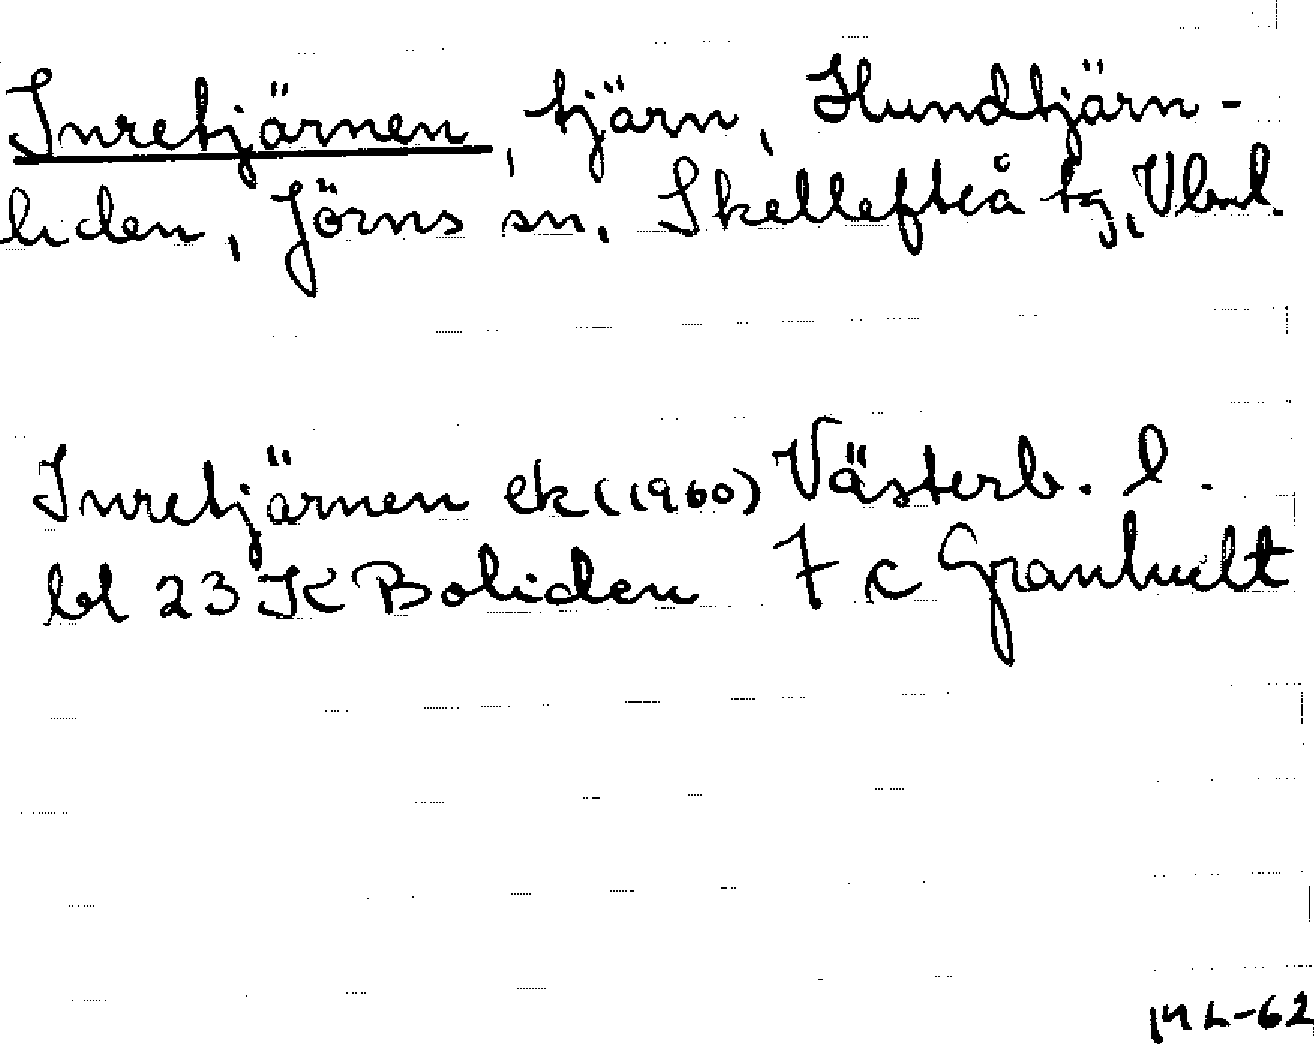 Inretjärnen, tjärn, Hundtjärn-
liden, Jörns sn, Skellefteå tg, Vbnl.
Inretjärnen ek (1960) Västerb. l.
bl 23 K Boliden 7 c Granhult
ML-62